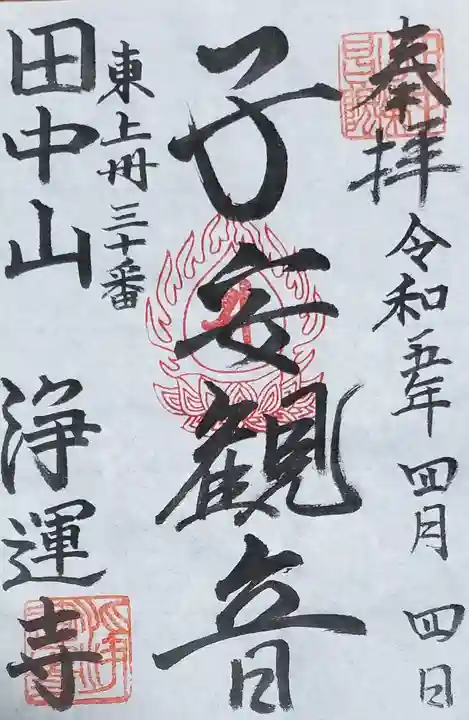 奉拝
令和五年 四月 四日
子安観音
東上州三十番
田中山 浄運寺